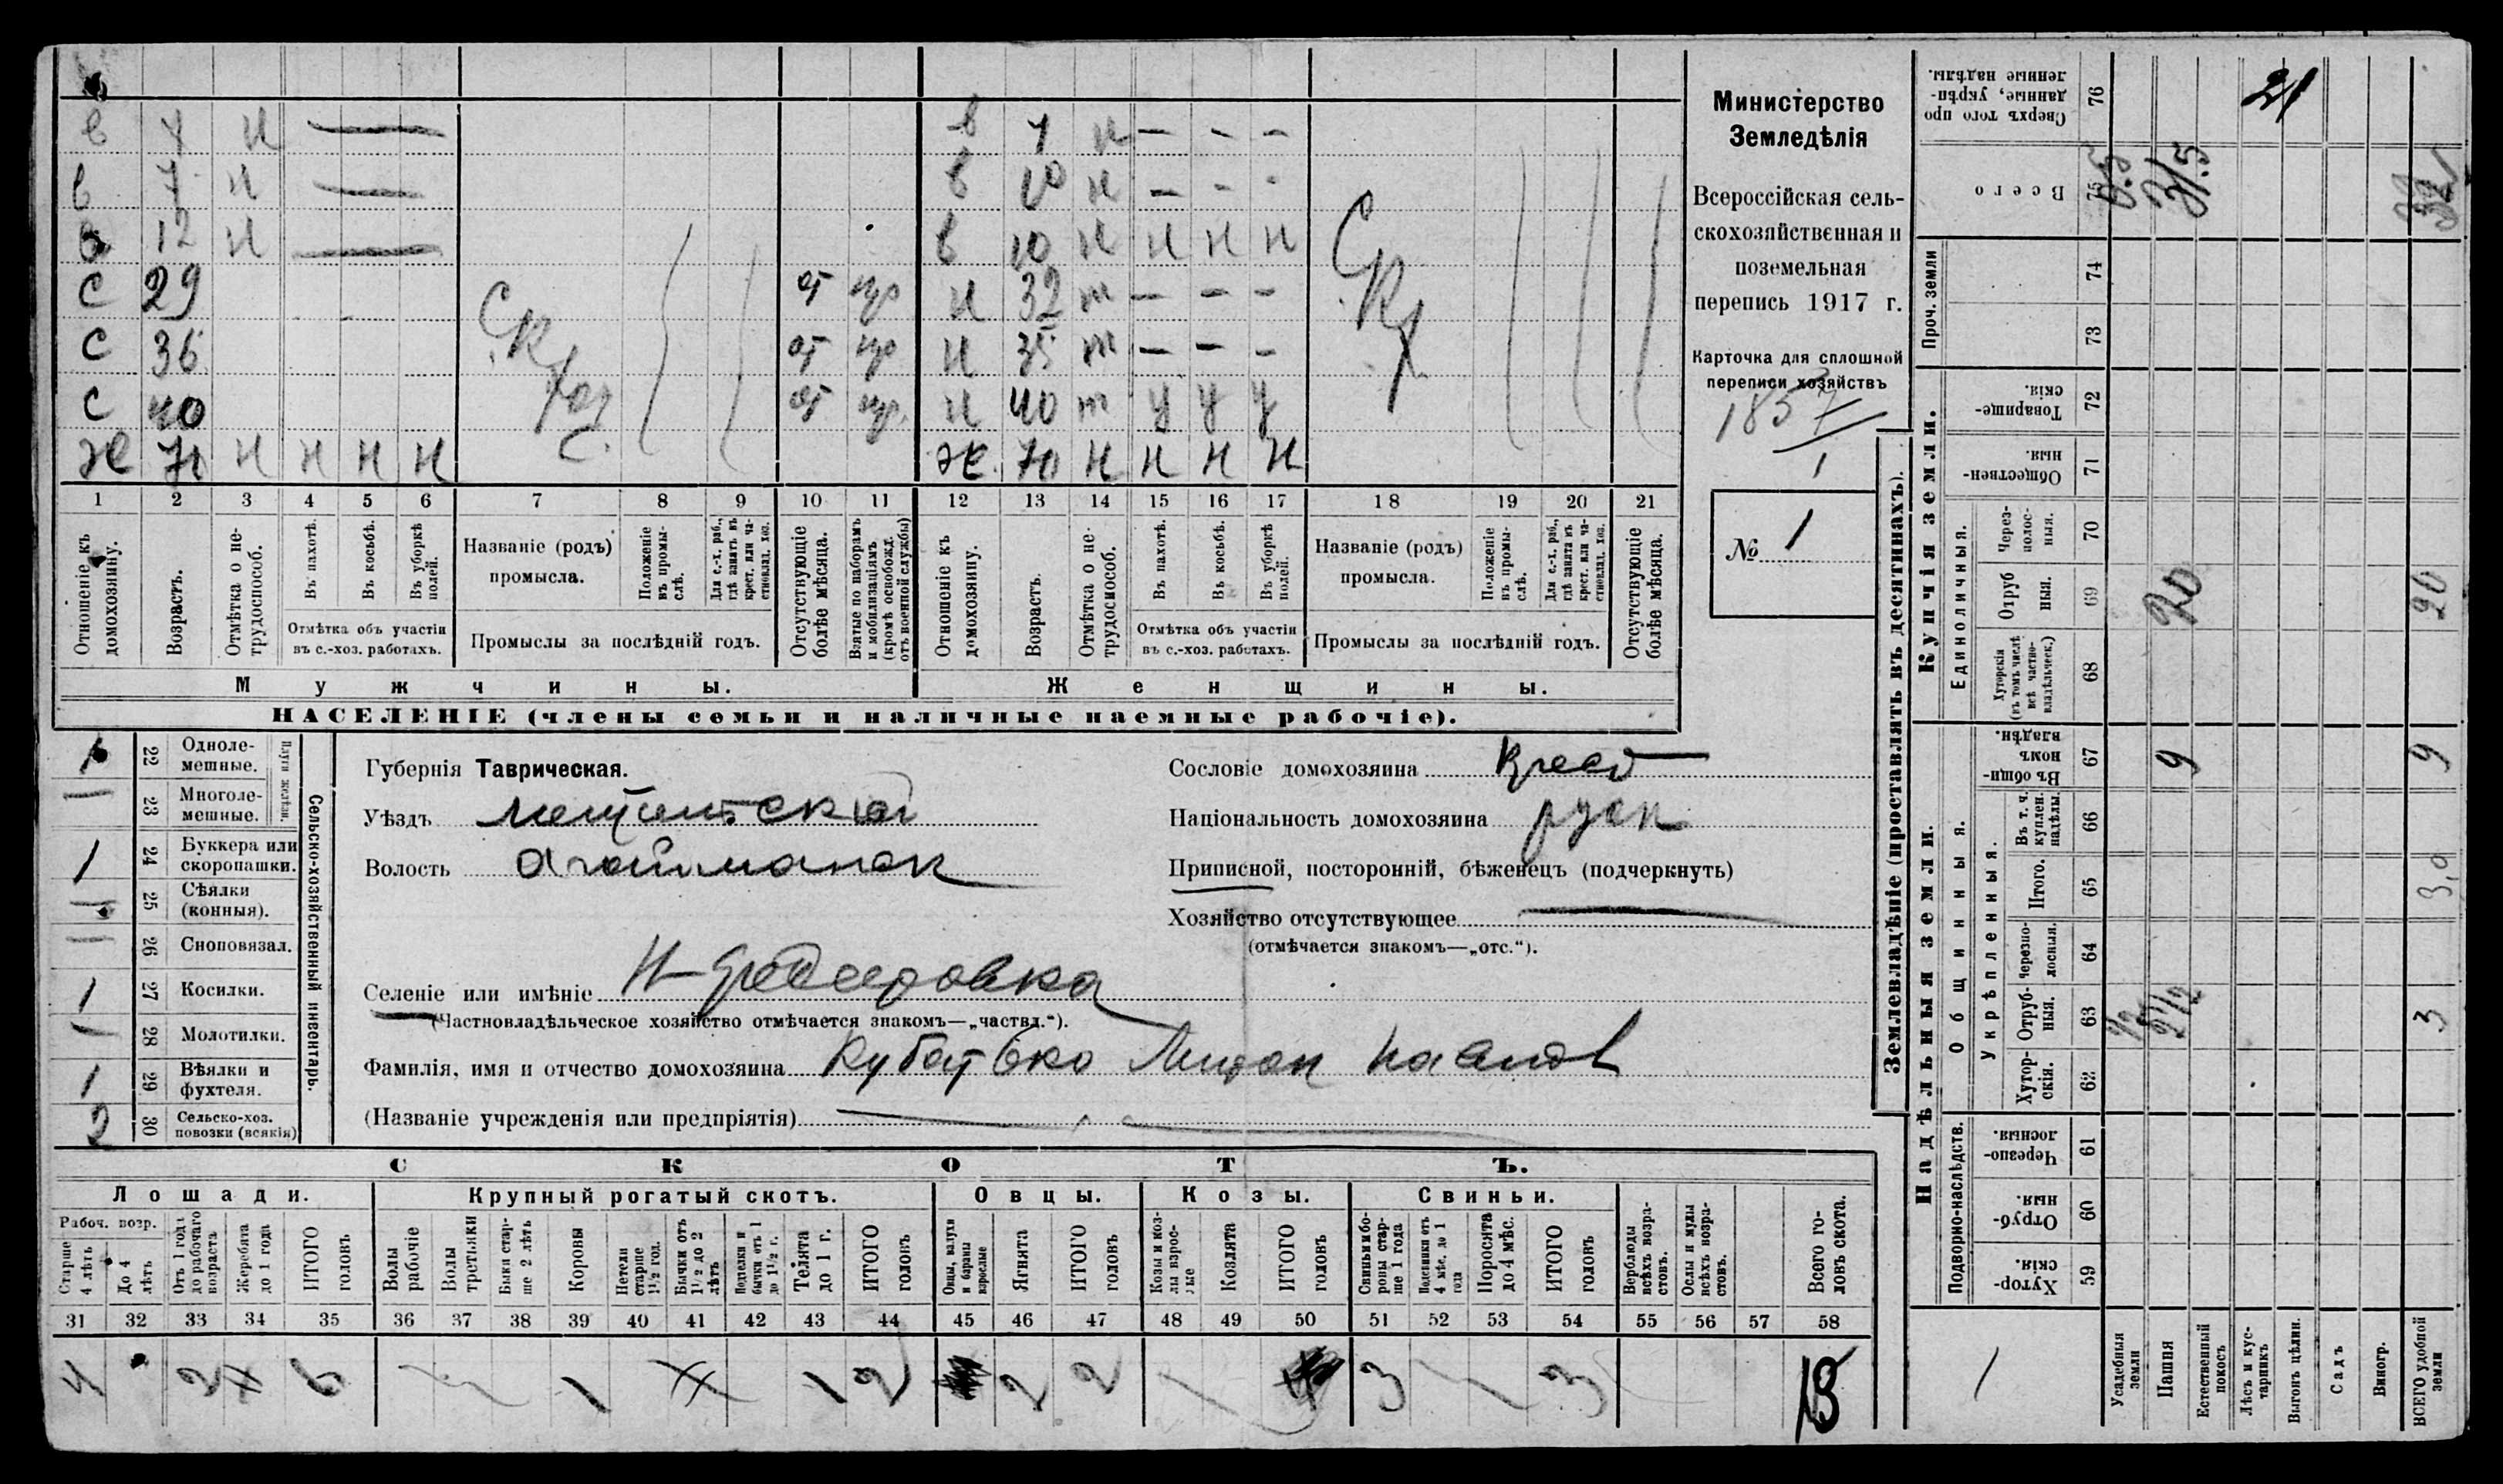 в 7 н — в 7 н — - –
в 7 н — в 10 н — - -
в 12 н — в 10 н н н н
с 29 от пр н 32 т — — –
с 36 от пр н 35 т — — –
с 40 от пр. н 40 т у у у
ж 70 н н н н ж. 70 н н н н
С.К. Хоз С.
С.К. Х
1 2 3 4 5 6 7 8 9 10 11 12 13 14 15 16 17 18 19 20 21
Отношеніе къ домохозяину.
Возрастъ.
Отмѣтка о не-трудоспособ.
Въ пахотѣ.
Въ косьбѣ.
Въ уборкѣ полей.
Отмѣтка объ участіи
въ с.-хоз. работахъ.
Названіе (родъ)
промысла.
Положеніе въ промы-слѣ.
Для с.-х. раб., гдѣ занятъ въ крест. или ча-стновлад. хоз.
Промыслы за послѣдній годъ.
Отсутствующіе болѣе мѣсяца.
Взятые по наборамъ и мобилизаціямъ (кромѣ освобожд. отъ военной службы)
Отношеніе къ домохозяину.
Возрастъ.
Отмѣтка о не-трудоспособ.
Въ пахотѣ.
Въ косьбѣ.
Въ уборкѣ полей.
Отмѣтка объ участіи
въ с.-хоз. работахъ.
Названіе (родъ)
промысла.
Положеніе въ промы-слѣ.
Для с.-х. раб., гдѣ занята въ крест. или ча-стновлад. хоз.
Промыслы за послѣдній годъ.
Отсутствующіе болѣе мѣсяца.
Мужчины.
Женщины.
НАСЕЛЕНІЕ (члены семьи и наличные наемные рабочіе).
Министерство
Земледѣлія
Всероссійская сель-
скохозяйственная и
поземельная
перепись 1917 г.
Карточка для сплошной
переписи хозяйствъ
1857
1
№ 1
1 22 Одноле-мешные.
— 23 Многоле-мешные.
Плуги желѣзн.
1 24 Буккера или скоропашки.
— 25 Сѣялки (конныя).
— 26 Сноповязал.
1 27 Косилки.
— 28 Молотилки.
1 29 Вѣялки и фухтеля.
2 30 Сельско-хоз. повозки (всякія)
Сельско-хозяйственный инвентарь.
Губернія Таврическая.
Уѣздъ
Волость Агайманск
Селеніе или имѣніе
(Частновладѣльческое хозяйство отмѣчается знакомъ—„частвл.“).
Фамилія, имя и отчество домохозяина
(Названіе учрежденія или предпріятія)
Сословіе домохозяина Крест
Національность домохозяина руск
Приписной, посторонній, бѣженецъ (подчеркнуть)
Хозяйство отсутствующее
(отмѣчается знакомъ—„отс.“).
СКОТЪ.
Лошади. Крупный рогатый скотъ. Овцы. Козы. Свиньи.
Рабоч. возр.
Старше 4 лѣтъ
До 4 лѣтъ
Отъ 1 года до рабочаго возраста
Жеребята до 1 года
ИТОГО головъ
Волы рабочіе
Волы третьяки
Быки стар-ше 2 лѣтъ
Коровы
Нетели старше 1½ год.
Бычки отъ 1½ до 2 лѣтъ
Подтелки и бычки отъ 1 до 1½ г.
Телята до 1 г.
ИТОГО головъ
Овцы, валухи и бараны взрослые
Ягнята
ИТОГО головъ
Козы и коз-лы взрос-лые
Козлята
ИТОГО головъ
Свиньи и бо-ровы стар-ше 1 года
Подсвинки отъ 4 мѣс. до 1 года
Поросята до 4 мѣс.
ИТОГО головъ
Верблюды всѣхъ возра-стовъ.
Ослы и мулы всѣхъ возра-стовъ.
Всего го-ловъ скота.
31 32 33 34 35 36 37 38 39 40 41 42 43 44 45 46 47 48 49 50 51 52 53 54 55 56 57 58
4 2 6 1 1 2 2 2 3 3 13
Землевладѣніе (проставлять въ десятинахъ).
Сверхъ того про-данные, укрѣп-ленные надѣлы. 76
Всего 75
Проч. земли 74 73
Купчія земли.
Товарище-скія. 72
Обществен-ныя. 71
Единоличныя.
Через-полос-ныя. 70
Отруб-ныя. 69 20 20
Хуторскія (въ томъ числѣ всѣ частно-владѣльческ.) 68
Надѣльныя земли.
Общинныя.
Въ общин-номъ владѣн. 67 9 9
Укрѣпленныя.
Въ т. ч. куплен. надѣлы. 66
Итого. 65 3,0
Черезпо-лосныя. 64
Отруб-ныя. 63 ½ 2½ 3
Хутор-скія. 62
Подворно-наслѣдств.
Черезпо-лосныя. 61
Отруб-ныя. 60
Хутор-скія. 59
Усадебныя земли
Пашня
Естественный покосъ
Лѣсъ и кус-тарникъ
Выгонъ цѣлин.
Садъ
Виногр.
ВСЕГО удобной земли